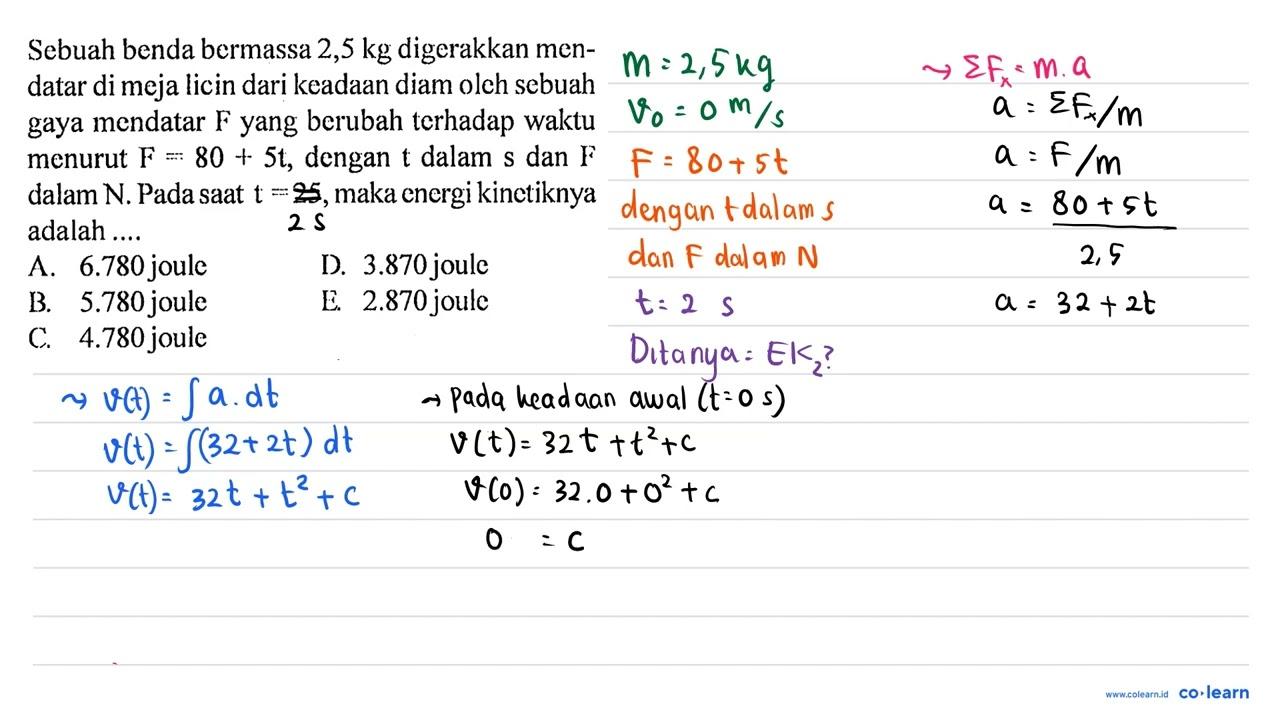 Sebuah benda bermassa 2,5 kg digerakkan men-
datar di meja licin dari keadaan diam oleh sebuah
gaya mendatar F yang berubah terhadap waktu
menurut F = 80 + 5t, dengan t dalam s dan F
dalam N. Pada saat t = 25, maka energi kinetiknya
2 s
adalah ....
A. 6.780 joule
B. 5.780 joule
C. 4.780 joule
D. 3.870 joule
E. 2.870 joule
m = 2,5 kg
v₀ = 0 m/s
F = 80 + 5t
dengan t dalam s
dan F dalam N
t = 2 s
Ditanya = EK₂?
~> ΣFₓ = m.a
a = ΣFₓ/m
a = F/m
a = 80 + 5t
2,5
a = 32 + 2t
~> v(t) = ∫ a . dt
v(t) = ∫(32 + 2t) dt
v(t) = 32t + t² + c
→ pada keadaan awal (t = 0 s)
v(t) = 32t + t² + c
v(0) = 32.0 + 0² + c
0 = c
www.colearn.id co·learn